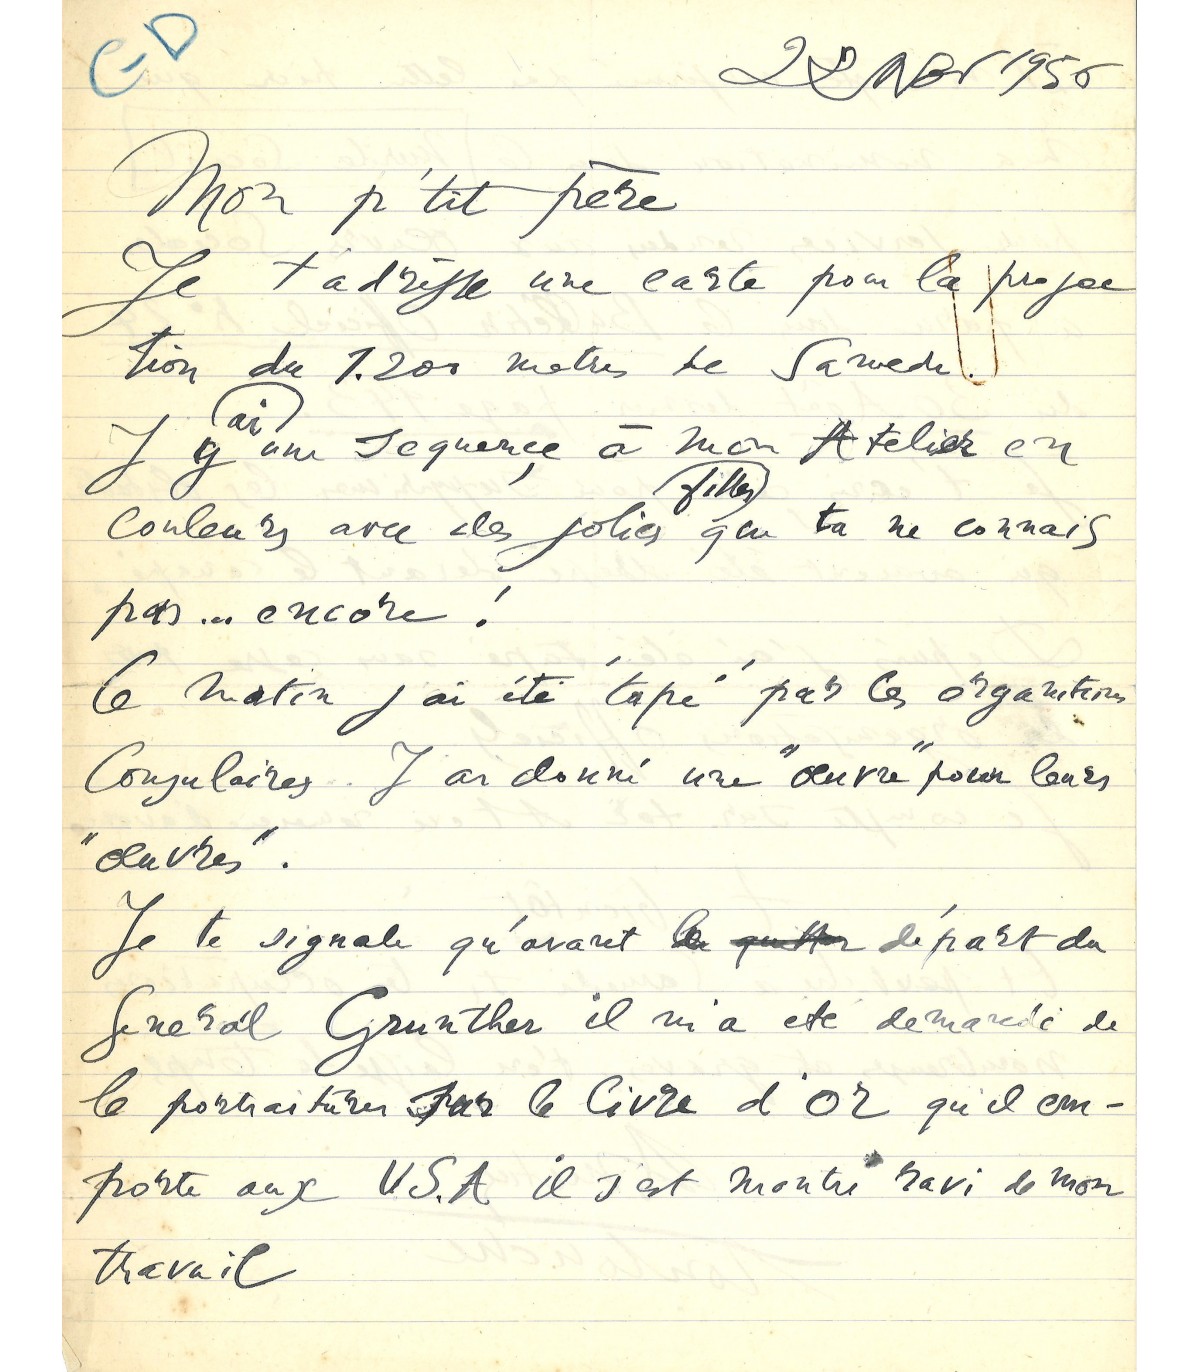 C-D
22 Nov 1956
Mon p'tit père
Je t'adresse une carte pour la projec
tion du 1.200 metres de Samedi.
J'y ai une sequence à mon Atelier en
couleurs avec des jolies filles que tu ne connais
pas... encore !
Ce matin j'ai été "tapé" par les organitions
Consulaires. J'ai donné une "œuvre" pour leurs
"œuvres".
Je te signale qu'avant le départ du
General Grunther il m'a eté demandé de
le portraiturer sur le Livre d'OR qu'il em-
porte aux U.S.A il s'est montré ravi de mon
travail